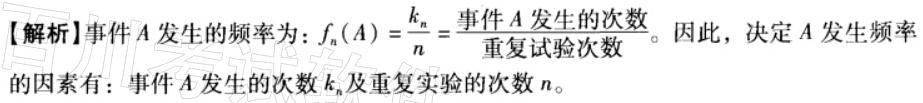 【解析】事件 A 发生的频率为：fₙ(A) = kₙ/n = 事件 A 发生的次数/重复试验次数。因此，决定 A 发生频率
的因素有：事件 A 发生的次数 kₙ及重复实验的次数 n。